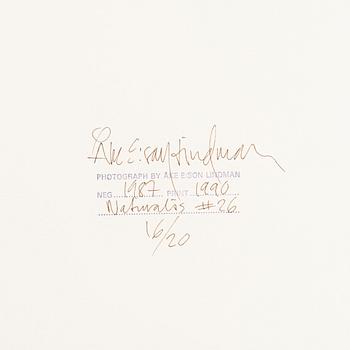 Åke E:son Lindman
PHOTOGRAPH BY ÅKE E:SON LINDMAN
NEG. 1987 PRINT 1990
Naturalis #26
16/20